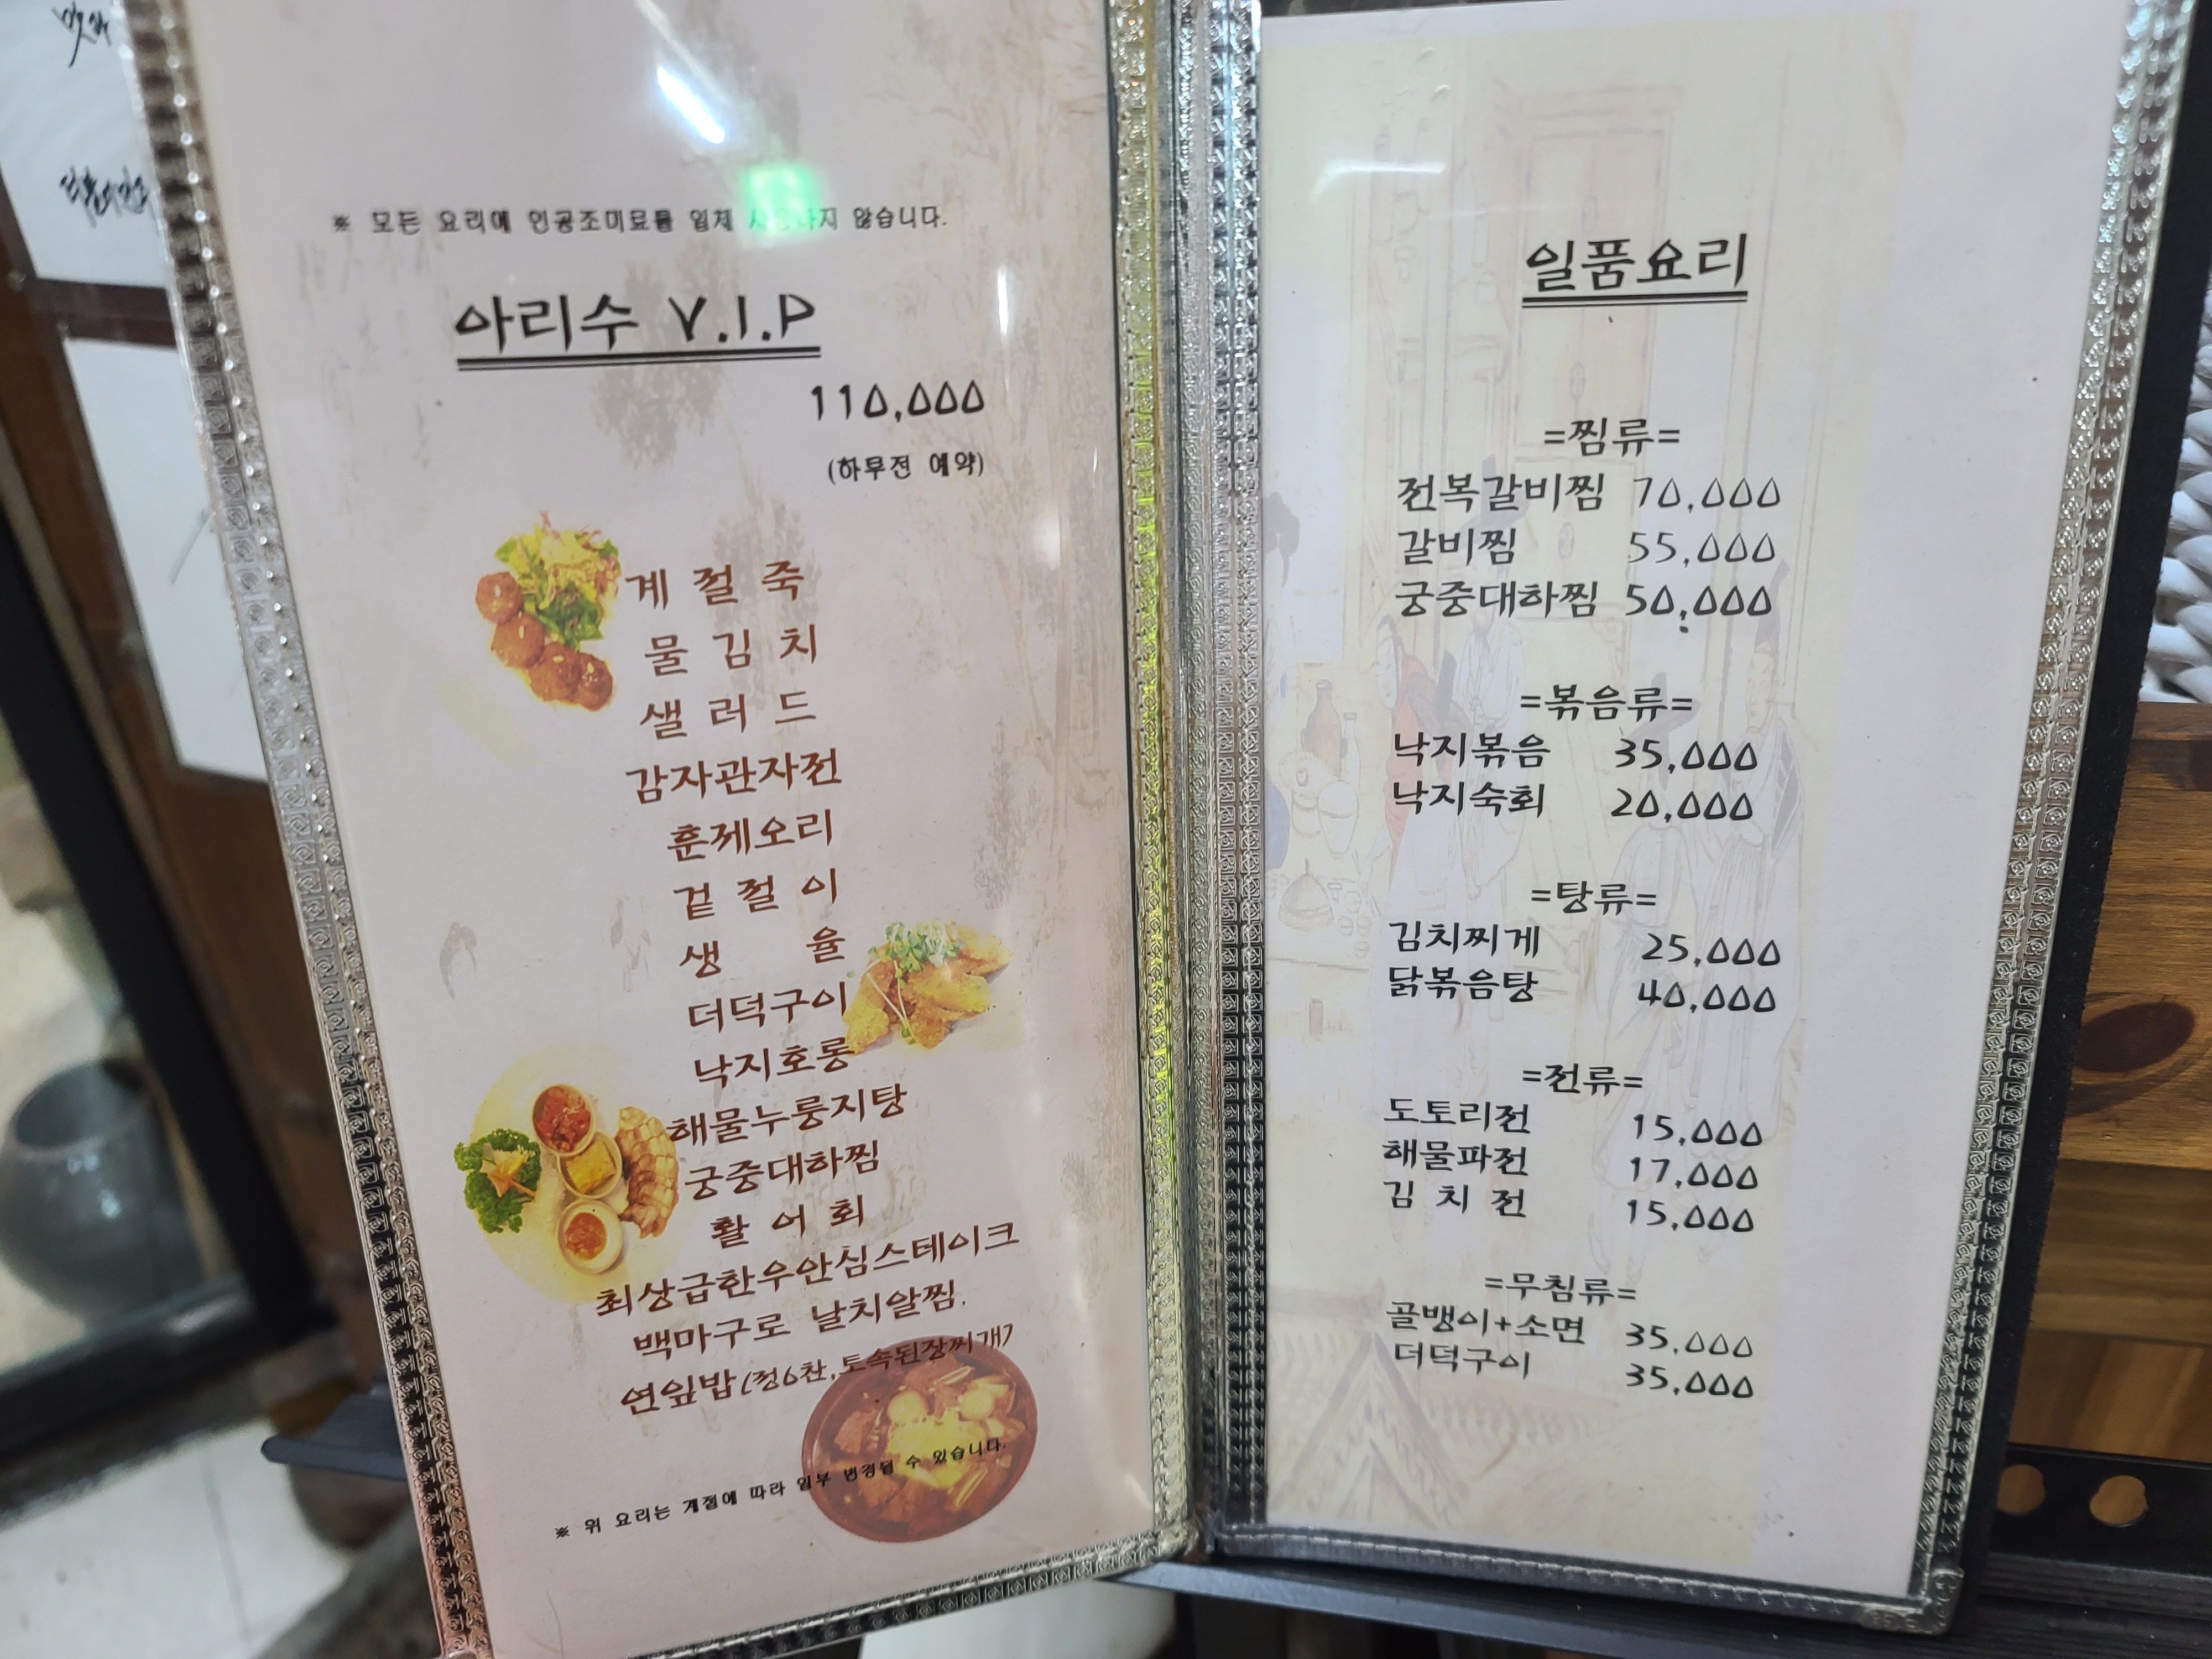 ※ 모든 요리에 인공조미료를 일체 사용하지 않습니다.
아리수 V.I.P
110,000
(하루전 예약)
계 절 죽
물 김 치
샐 러 드
감자관자전
훈제오리
겉 절 이
생 율
더덕구이
낙지호롱
해물누룽지탕
궁중대하찜
활 어 회
최상급한우안심스테이크
백마구로 날치알찜.
연잎밥(정6찬,토속된장찌개)
※ 위 요리는 계절에 따라 일부 변경될 수 있습니다.
일품요리
=찜류=
전복갈비찜 70,000
갈비찜 55,000
궁중대하찜 50,000
=볶음류=
낙지볶음 35,000
낙지숙회 20,000
=탕류=
김치찌게 25,000
닭볶음탕 40,000
=전류=
도토리전 15,000
해물파전 17,000
김 치 전 15,000
=무침류=
골뱅이+소면 35,000
더덕구이 35,000